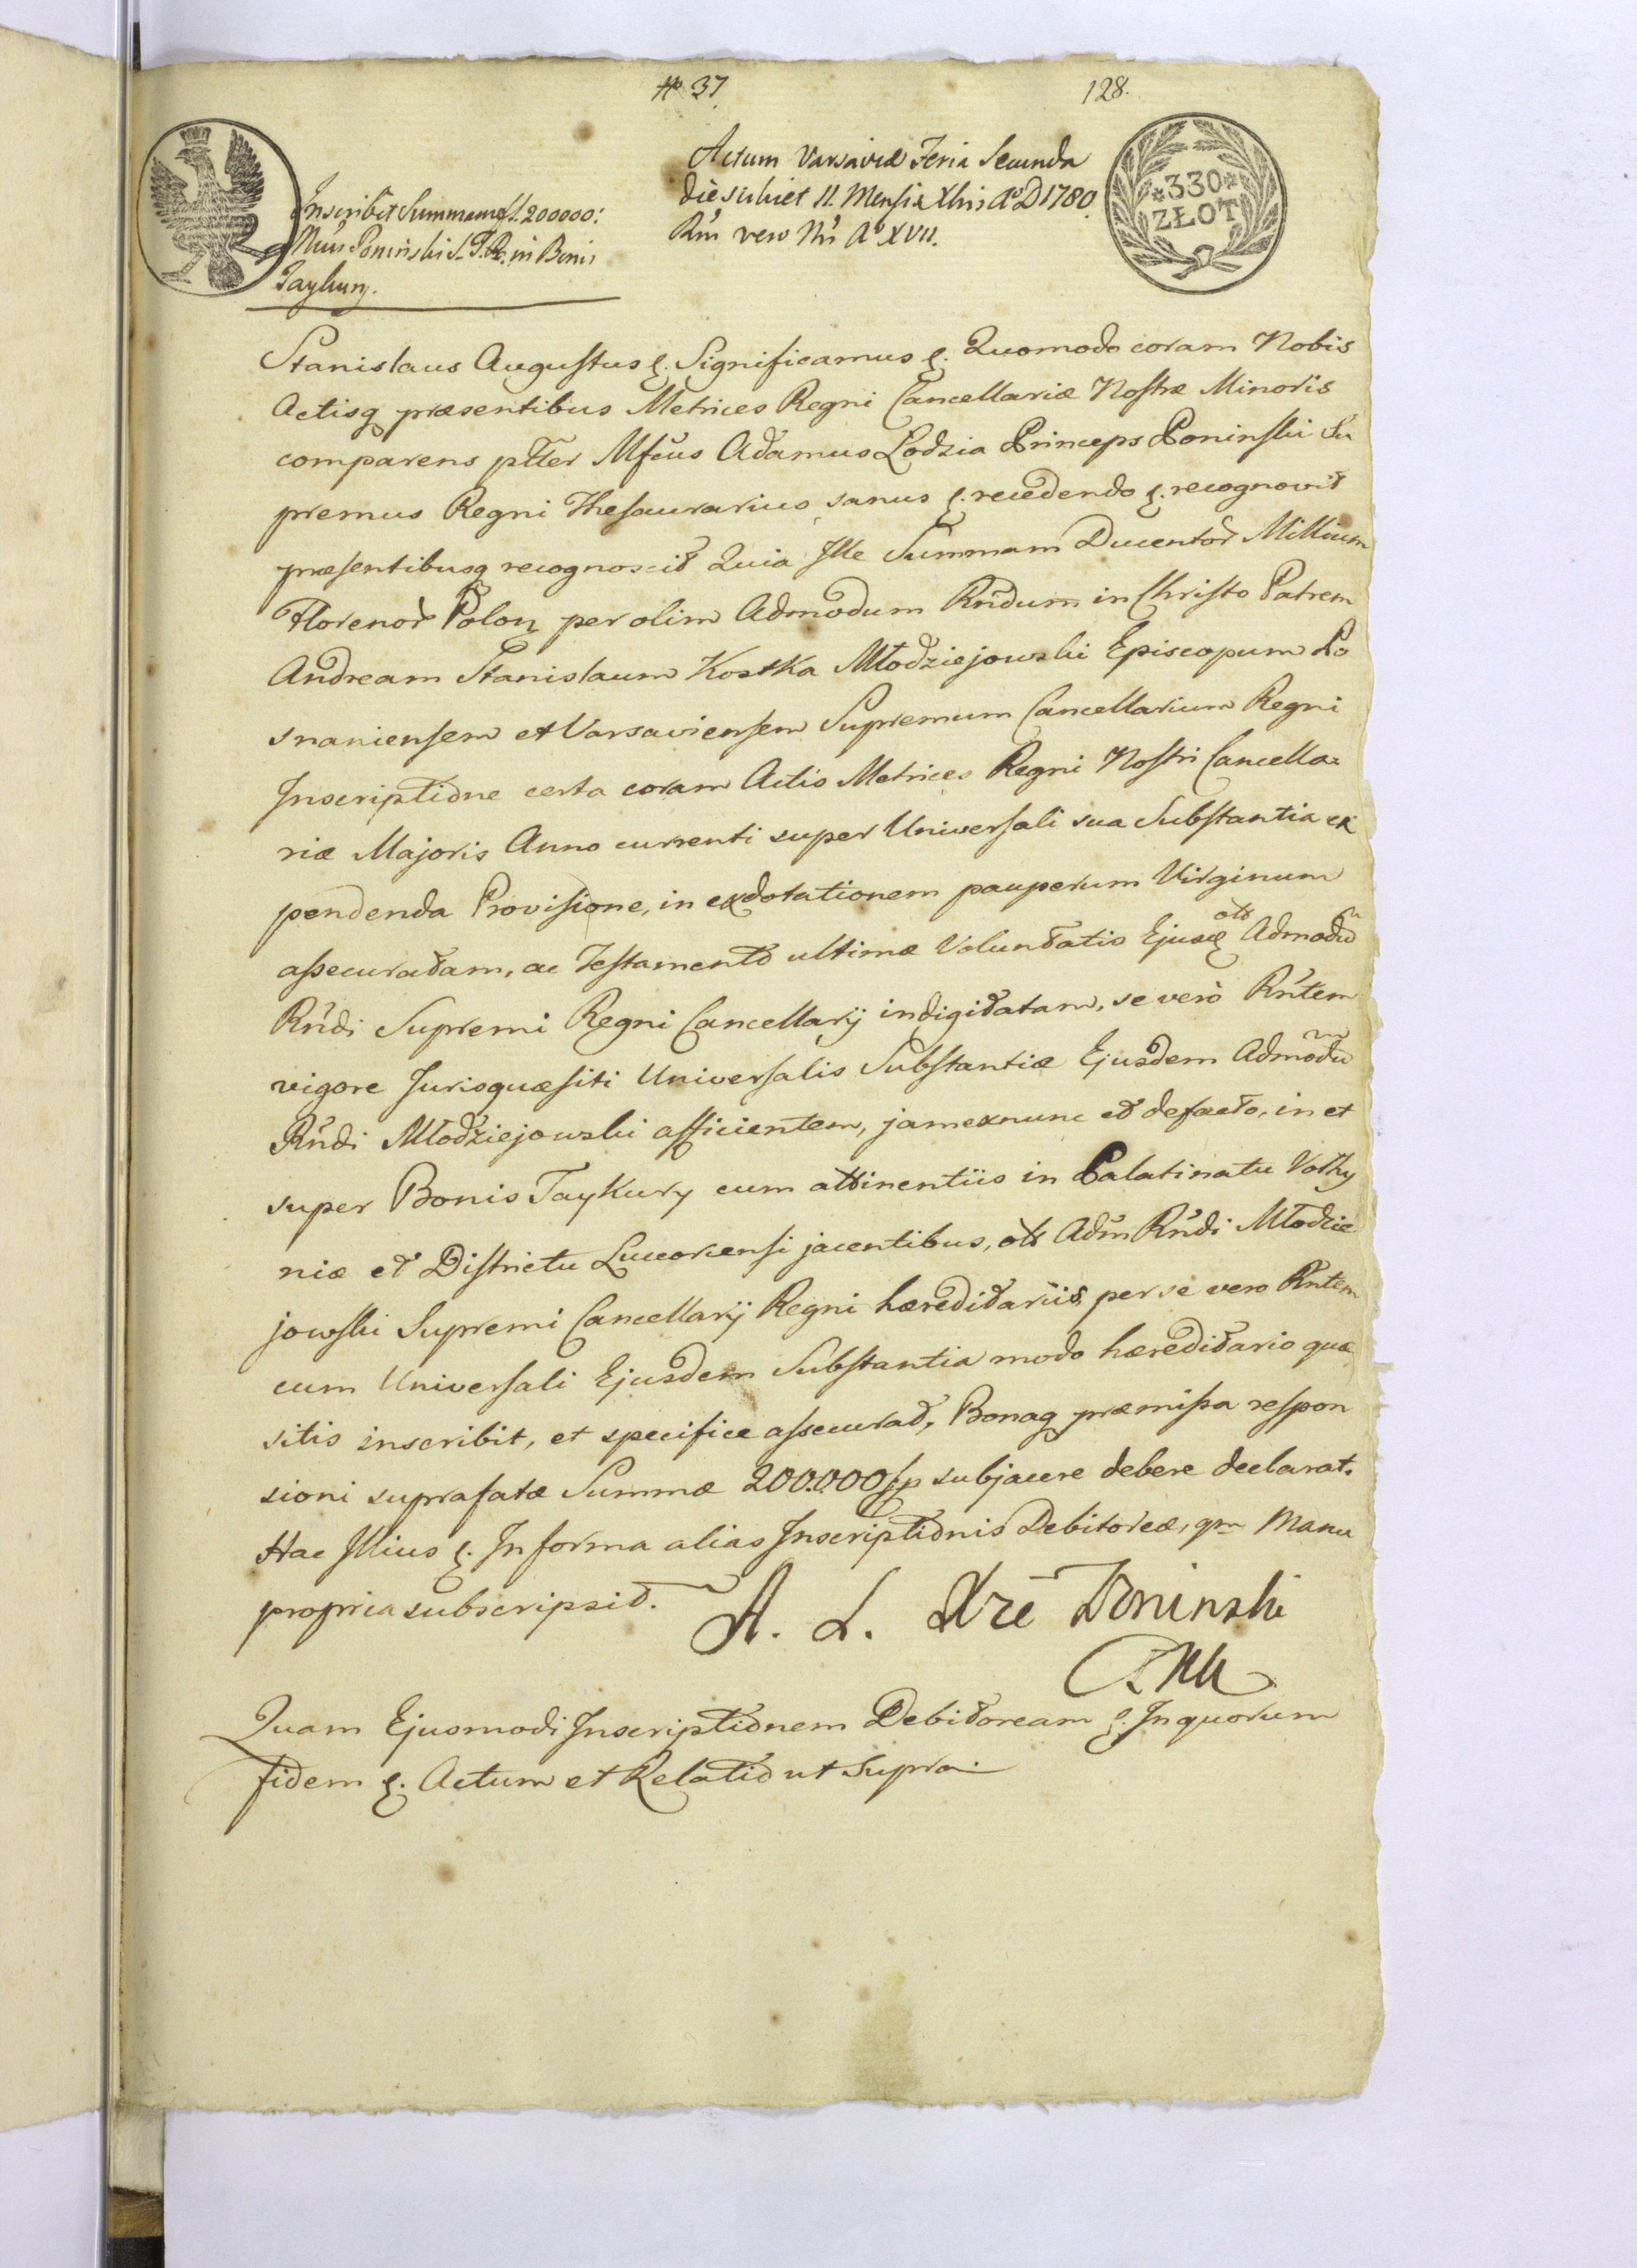 № 37
128.
Actum Varsaviæ Feria Secunda
die scilicet 11. Mensis Xbris A°D 1780.
Rni vero Nri A° XVII.
*330*
ZŁOT
Inscribit Summam fl. 200000:
Mcus Poninski S. T. R. in Bonis
Taykury.
Stanislaus Augustus &. Significamus &. Quomodo coram Nobis
Actisq præsentibus Metrices Regni Cancellariæ Nostræ Minoris
comparens psltr Mfcus Adamus Lodzia Princeps Poninski Su
premus Regni Thesaurarius sanus &. recedendo &. recognovit
præsentibusq recognoscit Quia Ille Summam Ducentor Millium
Florenor Polon per olim Admodum Rndum in Christo Patrem
Andream Stanislaum Kostka Młodziejowski Episcopum Po
snaniensem et Varsaviensem Supremum Cancellarium Regni
Inscriptione certa coram Actis Metrices Regni Nostri Cancella=
riæ Majoris Anno currenti super Universali sua Substantia ex
pendenda Provisione, in exdotationem pauperum Virginum
assecuratam, ac Testamento ultimæ Voluntatis Ejusd ol Admodu
Rndi Supremi Regni Cancellarij indigitatam, se vero Rntem
vigore Jurisquæsiti Universalis Substantiæ Ejusdem Admodu
Rndi Młodziejowski afficientem, jam exnunc et defacto, in et
super Bonis Taykury cum attinentiis in Palatinatu Volhy
niæ et Districtu Luceoriensi jacentibus, ol Adm Rndi Młodzie
jowski Supremi Cancellarij Regni hæreditariis, per se vero Rntem
cum Universali Ejusdem Substantia modo hæreditario quæ
sitis inscribit, et specifice assecurat, Bonaq præmissa respon
sioni suprafatæ Summæ 200.000 fp subjacere debere declarat.
Hac Illius &. In forma alias Inscriptionis Debitoreæ, qm Manu
propria subscripsit.
A. L. Xże Poninski
Quam Ejusmodi Inscriptionem Debitoream &. In quorum
fidem &. Actum et Relatio ut Supra.